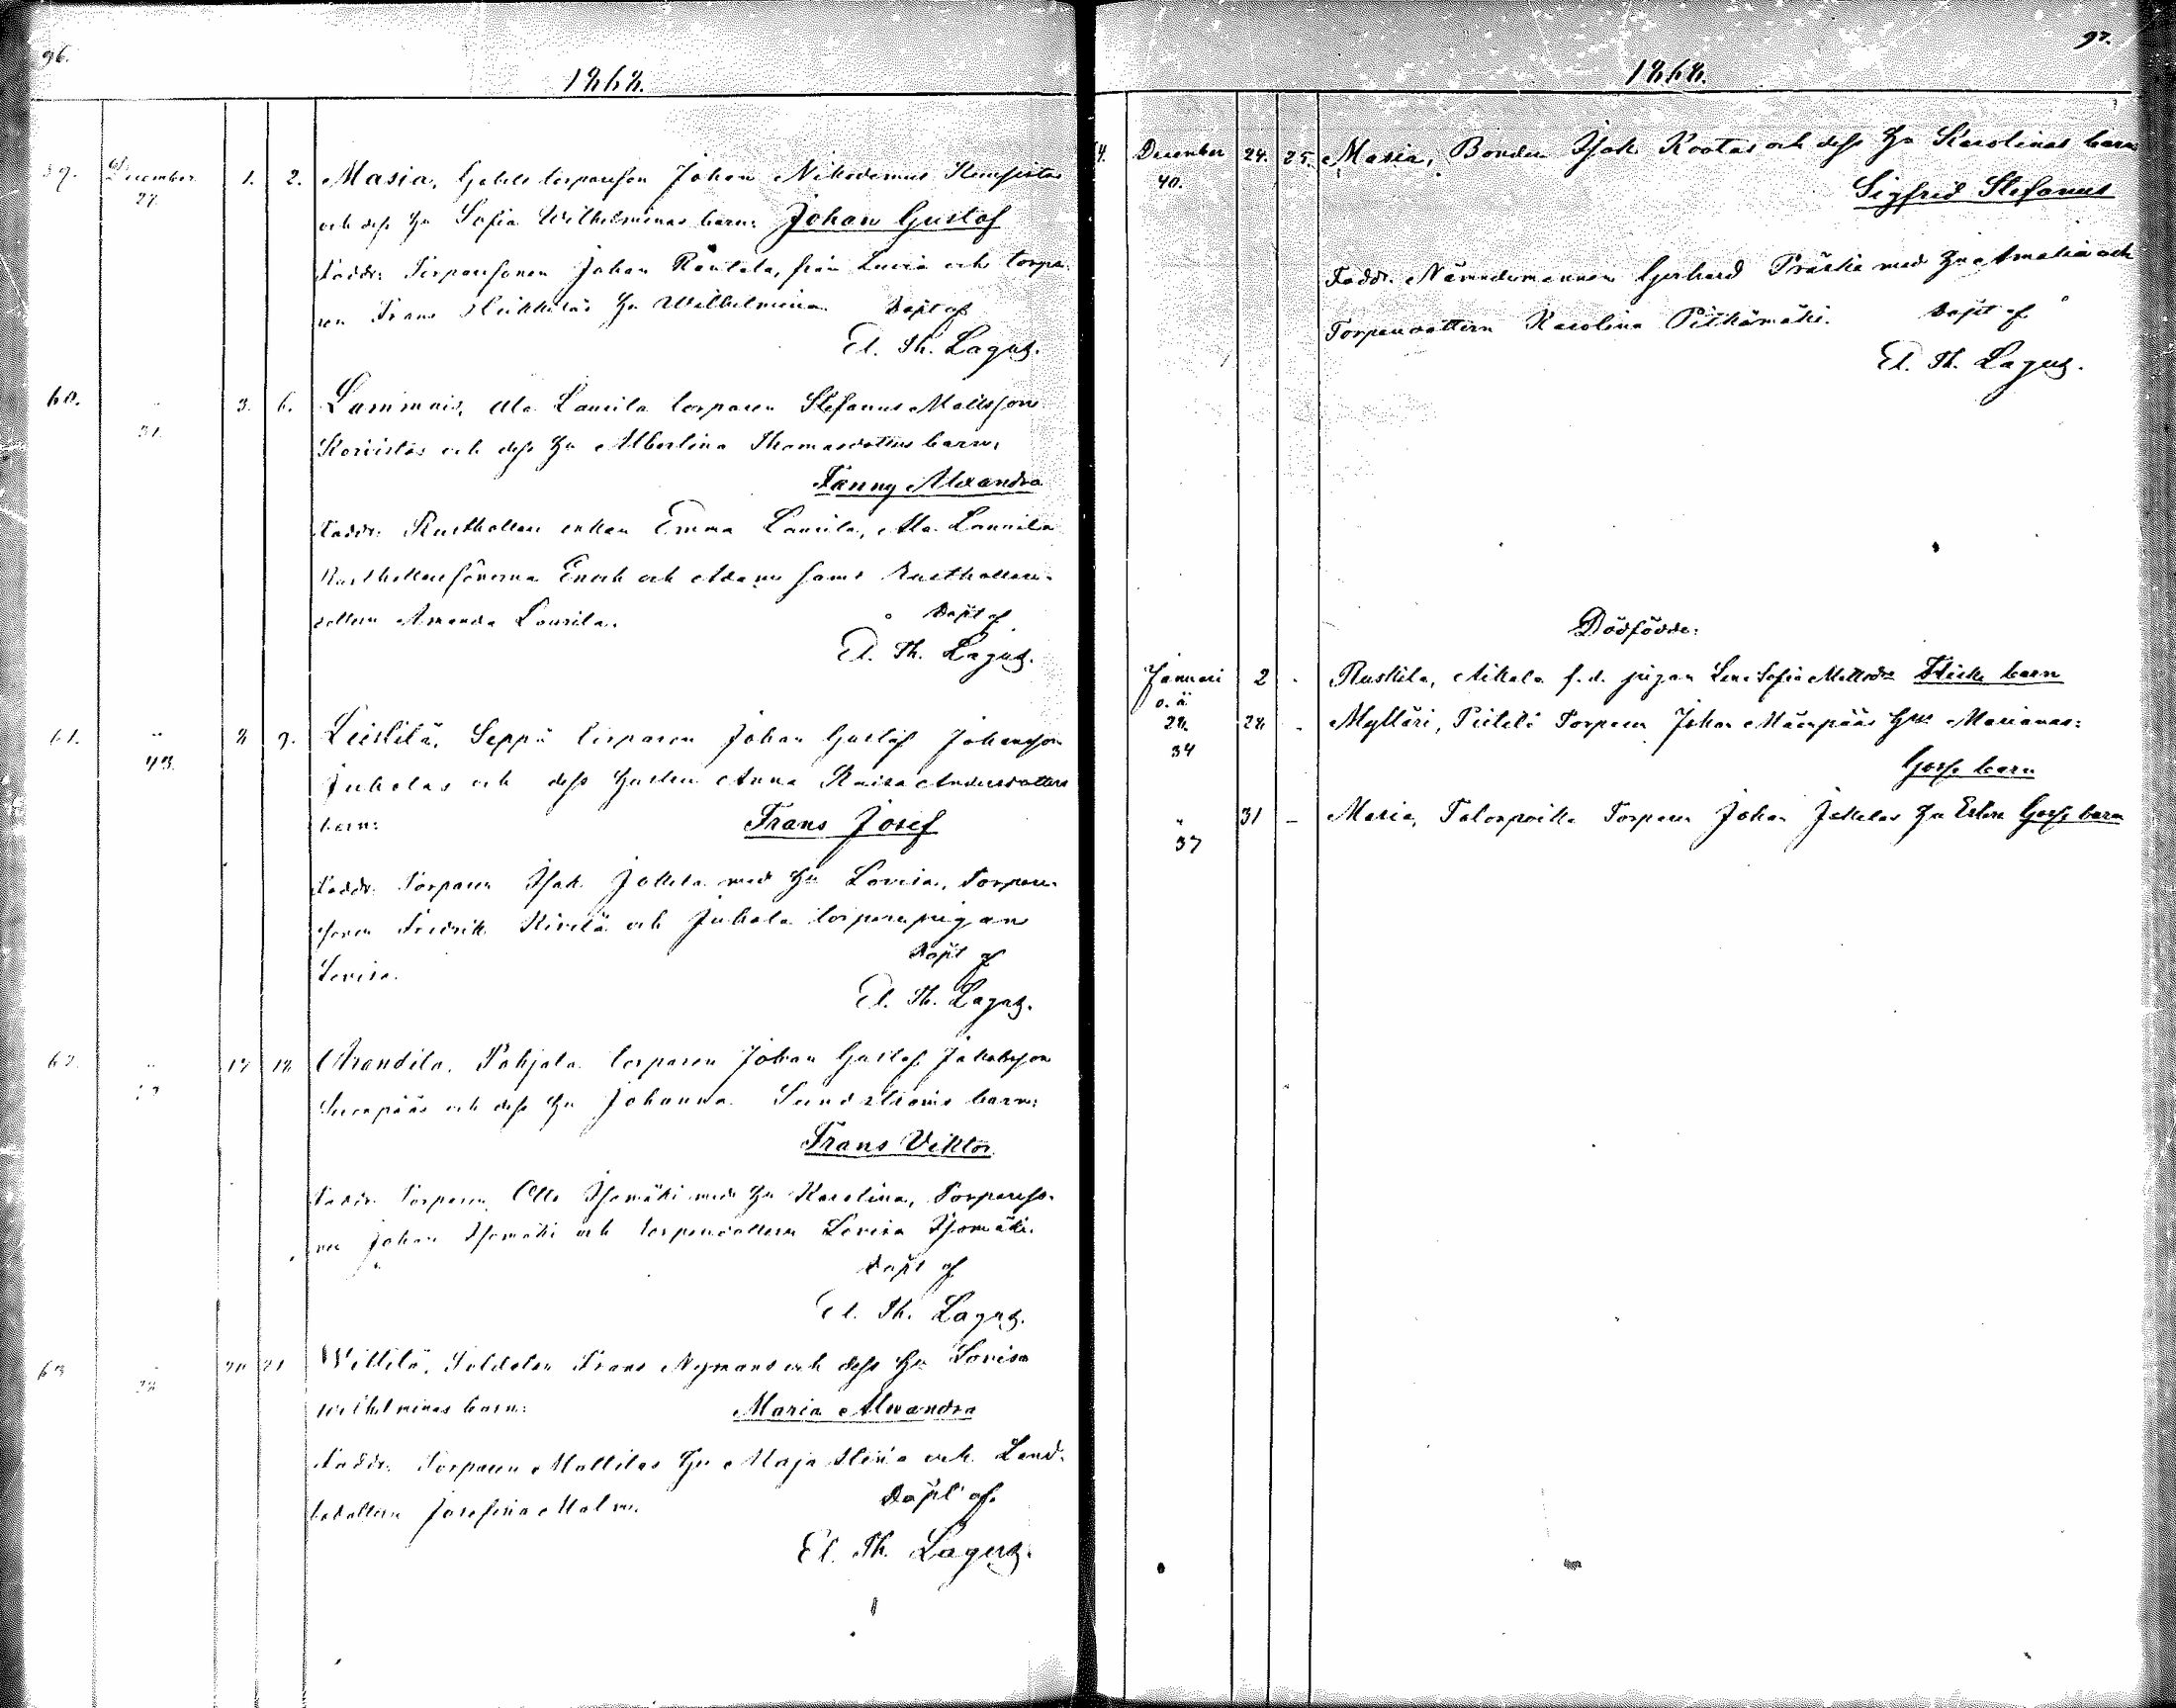 96.
1868.
59. December 1. 2. Masia, Gabels torpareson Johan Nikodemus
27. och dess Hu Sofia Wilhelminas barn: Johan Gustaf
Faddr: Torparesonen Johan Rantala, från Luvia och torpa-
ren Frans Heikkiläs Hu Wilhelmina. Döpt af
El. Th. Lagus.
60. " 3. 6. Lammais, Ala Laurila torparen Stefanus Mattsson
31. Koivistos och dess Hu Albertina Thomasdotters barn:
Fanny Alexandra
Faddr: Rusthållare enkan Emma Laurila, Ala Laurila
Rusthållaresönerna Enoch och Adam samt Rusthållare-
dottern Amanda Laurila. Döpt af
El. Th. Lagus.
61. " 8 9. Leistilä, Seppä torparen Johan Gustaf Johansson
43. Juholas och dess Hustru Anna Kaisa Andersdotters
barn: Frans Josef
Faddr: Torparen Isak Jokela med Hu Lovisa, Torpare-
sonen Fredrik Kivelä och Juhola torparepigan
Lovisa. Döpt af
El. Th. Lagus.
62. " 17 18 Arandila, Pohjala torparen Johan Gustaf Jakobsson
och dess Hu Johanna Sundströms barn:
Frans Viktor
Faddr: Torparen Otto Isomäki med Hu Karolina, Torpareso-
nen Johan Isomäki och torparedottern Lovisa Isomäki.
Döpt af
El. Th. Lagus.
63 " 20 21 Wittilä, Soldaten Frans Nymans och dess Hu Lovisa
28 Wilhelminas barn: Maria Alexandra
Faddr: Torparen Mattilas Hu Maja Stina och Land-
bodottern Josefina Malm. Döpt af.
El. Th. Lagus.
97.
1868.
4. December 24. 25. Masia, Bonden Isak Kootas och dess Hu Karolinas barn
40. Sigfrid Stefanus
Faddr. Nämndemannen Gerhard Präski med Hu Amalia och
Torparedottern Karolina Pitkämäki. Döpt af
El. Th. Lagus.
Dödfödde:
Januari 2 - Ruskila, Aikala f.d. pigan Lena Sofia Mattsdr Flicke barn
o. ä.
28. 28 - Mylläri, Pietilä Torparen Johan Mäenpääs Hus Marianas:
34 Gosse barn
" 31 - Masia, Torparen Johan Jokelas Hu Esters Gosse barn
37